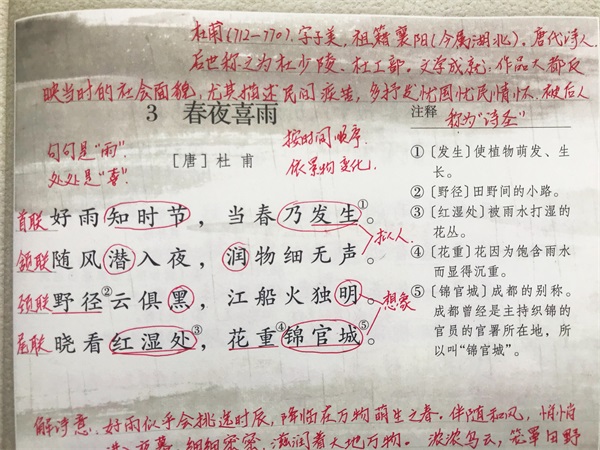 杜甫(712-770),字子美,祖籍襄阳(今属湖北)。唐代诗人。
后世称之为杜少陵、杜工部。文学成就:作品大都反
映当时的社会面貌,尤其描述民间疾苦,多抒发忧国忧民情怀。被后人
称为“诗圣”
3 春夜喜雨
句句是“雨”
处处是“喜”
[唐]杜 甫
按时间顺序
依景物变化
首联 好雨知时节,当春乃发生①。
颔联 随风潜入夜,润物细无声。
拟人
颈联 野径②云俱黑,江船火独明。
想象
尾联 晓看红湿处③,花重④锦官城⑤。
注释
①〔发生〕使植物萌发、生
长。
②〔野径〕田野间的小路。
③〔红湿处〕被雨水打湿的
花丛。
④〔花重〕花因为饱含雨水
而显得沉重。
⑤〔锦官城〕成都的别称。
成都曾经是主持织锦的
官员的官署所在地,所
以叫“锦官城”。
解诗意:好雨似乎会挑选时辰,降临在万物萌生之春。伴随和风,悄悄
进入夜幕。细细密密,滋润着大地万物。浓浓乌云,笼罩田野